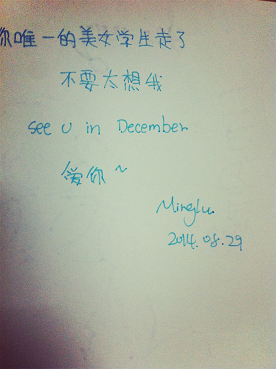 你唯一的美女学生走了
不要太想我
see u in December
爱你~
Minglu
2014.08.29